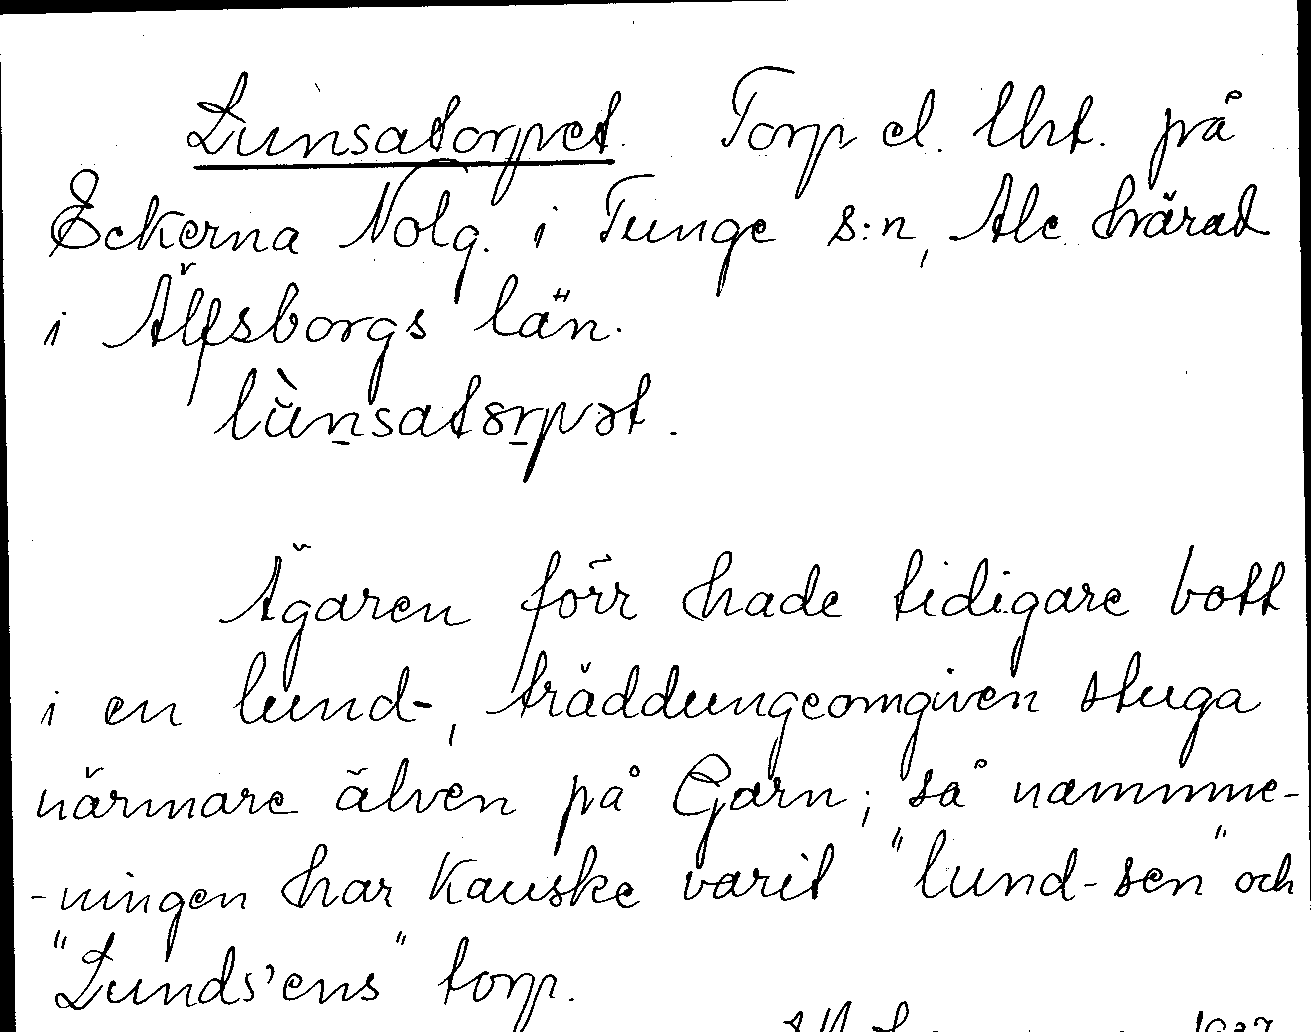 Lunsatorpet. Torp el. lht. på
Eckerna Nolg. i Tunge s:n, Ale härad
i Älfsborgs län.
lùn̲satɔr̲pət.
Ägaren förr hade tidigare bott
i en lund-, träddungeomgiven stuga
närmare älven på Garn; så namnme-
-ningen har kanske varit "lund-sen" och
"Lunds'ens" torp.
1937